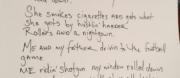 She smokes cigarettes and gets what
She gets by hustlin' harder
Rollers and a nightgown.
Me and my father drivin to the football
game
Me ridin' shotgun my window rolled down